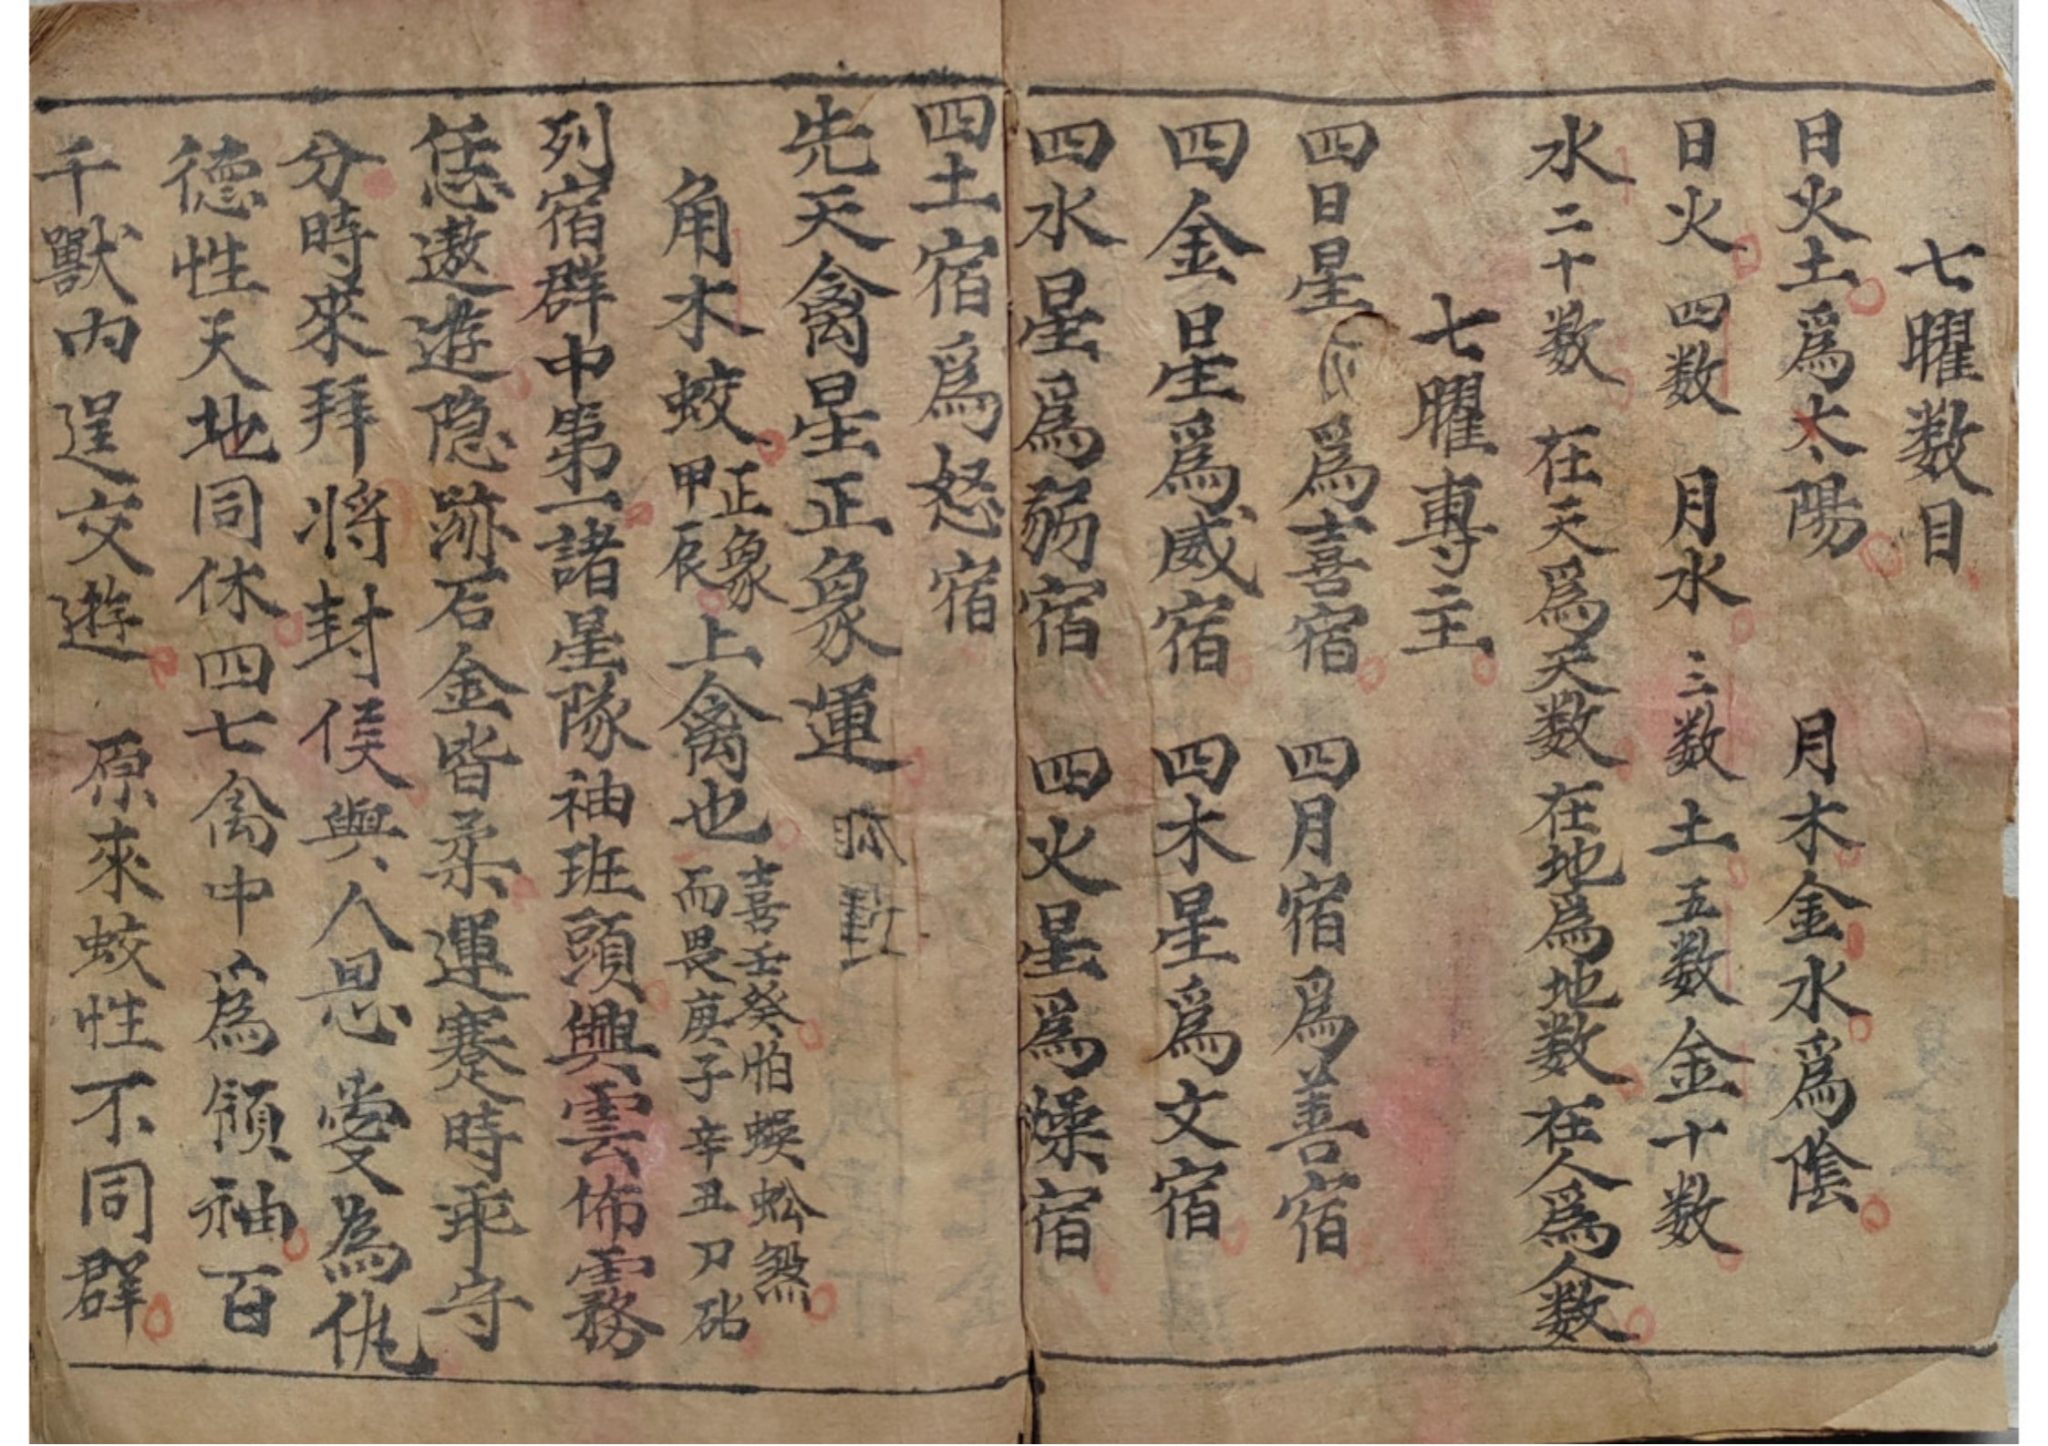 七曜数目
日火土爲太陽 月木金水爲陰
日火四数 月水三数土五数金十数
水二十数 在天爲天数在地爲地数在人爲人数
七曜專主
四日星爲喜宿 四月宿爲善宿
四金星爲威宿 四木星爲文宿
四水星爲弱宿 四火星爲燥宿
四土宿爲怒宿
先天禽星正象運
角木蛟正象甲辰上禽也喜壬癸怕蜈蚣煞而畏庚子辛丑刀砧
列宿群中第一諸星隊袖班頭興雲佈霧
恁遨遊隐跡石金皆柔運蹇時乖守
分時來拜將封侯與人恩愛為仇
德性天地同休四七禽中為領袖百
千獸内逞交遊 原來蛟性不同群